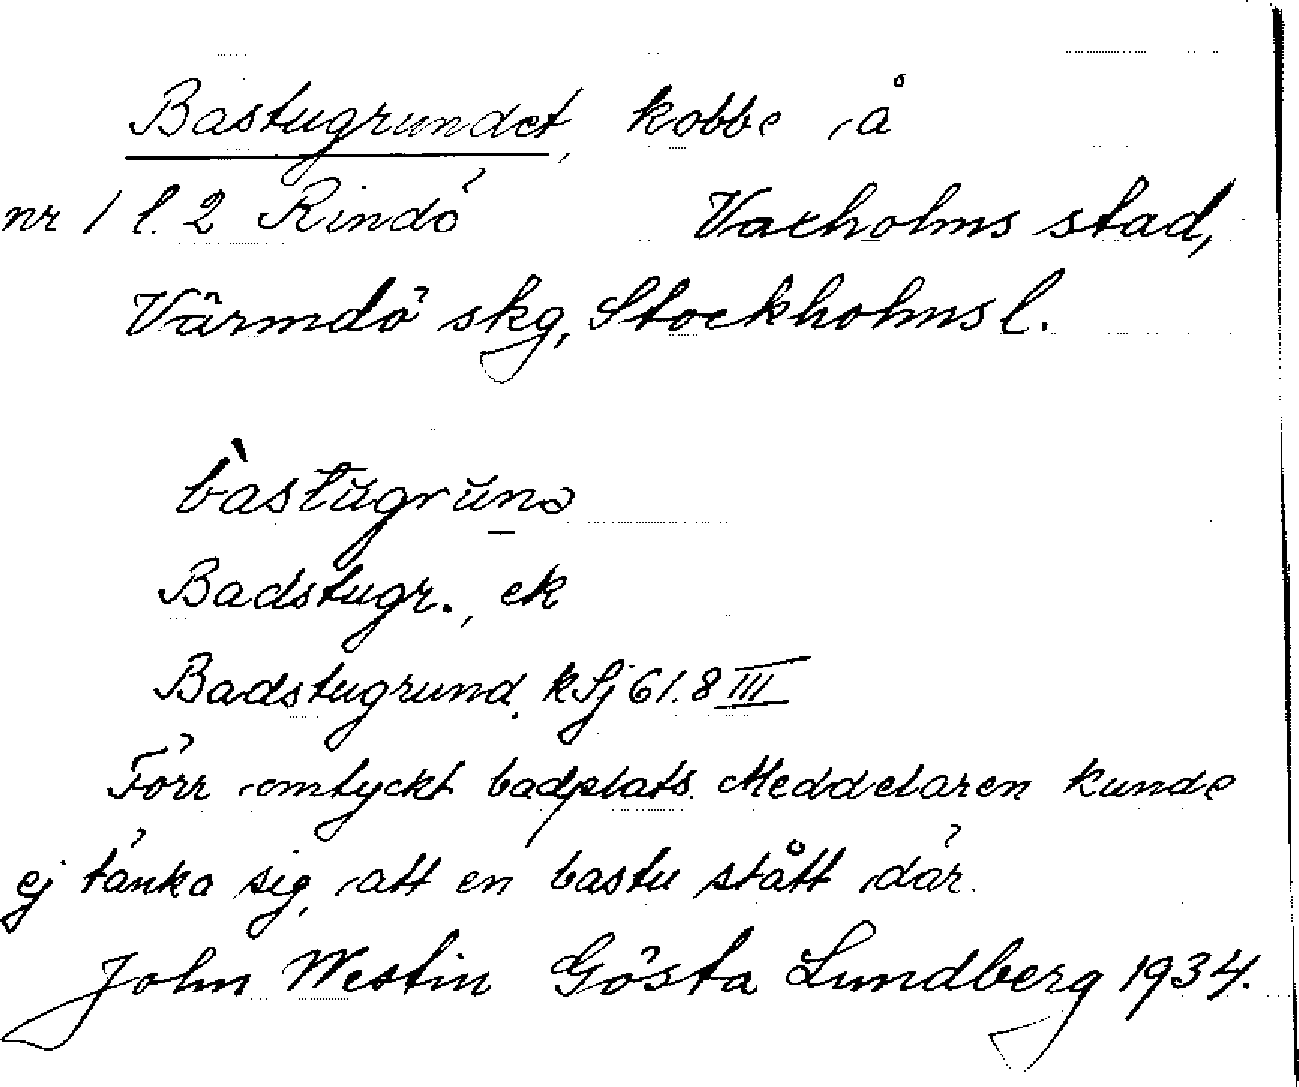 Bastugrundet, kobbe å
nr 1 l. 2 Rindö Vaxholms stad,
Värmdö skg, Stockholms l.
bàstugruna
Badstugr., ek
Badstugrund, k Sj 61.8 III
Förr omtyckt badplats. Meddelaren kunde
ej tänka sig, att en bastu stått där.
John Westin Gösta Lundberg 1934.